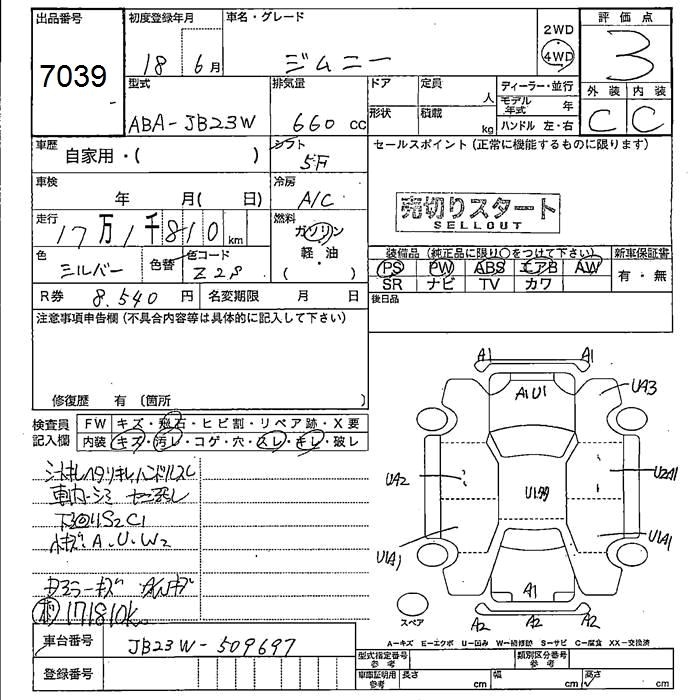 出品番号
7039
初度登録年月
18 6月
車名・グレード
ジムニー
2WD
4WD
評価点
3
外装 内装
C C
型式
ABA-JB23W
排気量
660 cc
ドア
定員
人
形状
積載
kg
ディーラー・並行
モデル年式 年
ハンドル 左・右
車歴
自家用・( )
シフト
5F
車検
年 月( 日)
冷房
A/C
走行
17万1千810 km
燃料
ガソリン
軽・油
( )
色
シルバー
色替
色コード
Z2S
R券 8.540 円
名変期限 月 日
セールスポイント(正常に機能するものに限ります)
売切りスタート
SELLOUT
装備品(純正品に限り○をつけて下さい)
新車保証書
PS PW ABS エアB AW
有・無
SR ナビ TV カワ
後日品
注意事項申告欄(不具合内容等は具体的に記入して下さい)
修復歴 有(箇所 )
検査員記入欄
FW キズ・飛石・ヒビ割・リペア跡・X要
内装 キズ・汚レ・コゲ・穴・スレ・キレ・破レ
ハンドルスレ
車内
下回りS2C1
小キズ A.U.W2
171810K
車台番号
JB23W-509697
登録番号
A1 A1
A1U1
UA3
UA2
U2A1
UA1
U1A1
A1
A2 A2 A2
スペア
A-キズ E-エクボ U-凹み W-補修跡 S-サビ C-腐食 XX-交換済
型式指定番号 参考
類別区分番号 参考
車庫証明用 参考
長さ cm
幅 cm
高さ cm